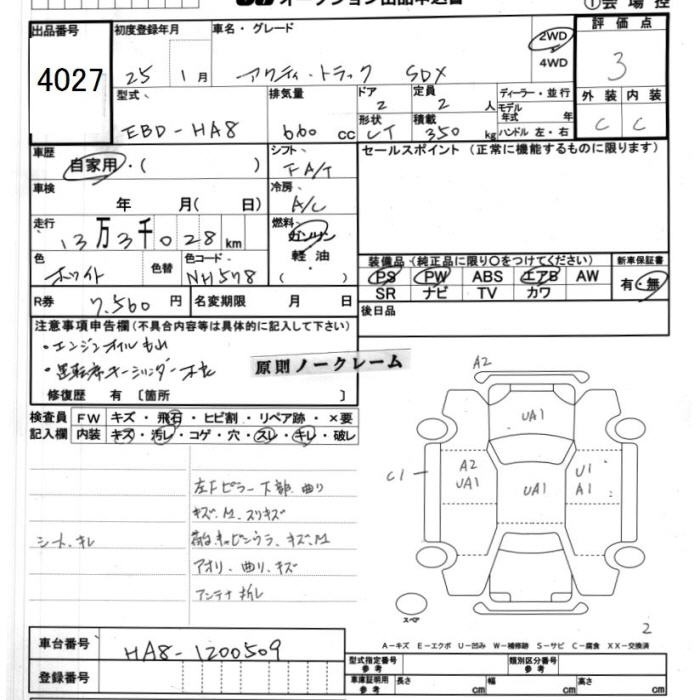 オークション出品申込書
①会場控
出品番号 初度登録年月 車名・グレード 評価点
4027 25年 1月 アクティ・トラック SDX 2WD 4WD 3
型式 排気量 ドア 定員 ディーラー・並行 外装 内装
EBD-HA8 660 cc 2 2人 モデル年式 年 C C
形状 積載 ハンドル 左・右
LT 350 kg
車歴 シフト セールスポイント(正常に機能するものに限ります)
自家用・( ) F A/T
車検 冷房
年 月( 日) A/C
走行 燃料
13万3千028km ガソリン
軽油
・
( )
色 色替 色コード
ホワイト NH578
装備品(純正品に限り○をつけてください) 新車保証書
PS PW ABS エアB AW 有・無
SR ナビ TV カワ
R券 7,560円 名変期限 月 日 後日品
注意事項申告欄(不具合内容等は具体的に記入して下さい)
・エンジンオイル
・運転席
原則ノークレーム
修復歴 有 〔箇所 〕
検査員 FW キズ・飛石・ヒビ割・リペア跡・×要
記入欄 内装 キズ・汚レ・コゲ・穴・スレ・キレ・破レ
A2
UA1
C1 A2 UA1 UA1 U1 A1
左Fピラー下部曲り
キズ、M、スリキズ
シート、キレ
キャビンウラ、キズ、M
アオリ、曲り、キズ
アンテナ折レ
スペア
2
車台番号 HA8-1200509
A-キズ E-エクボ U-凹み W-補修跡 S-サビ C-腐食 XX-交換済
登録番号
型式指定番号 参考 類別区分番号 参考
車庫証明用 参考 長さ cm 幅 cm 高さ cm